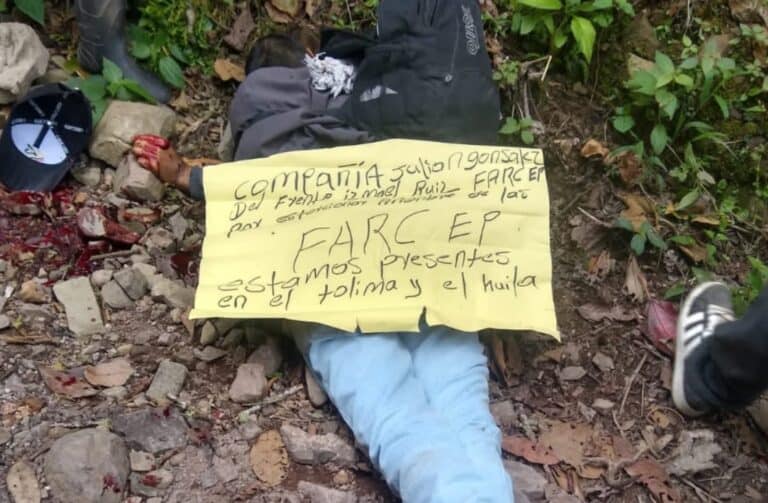 Compañia Julian gonsalez
Del Frente ismael Ruiz FARC EP
por estorcionar nombre de las
FARC EP.
estamos presentes
en el tolima y el huila